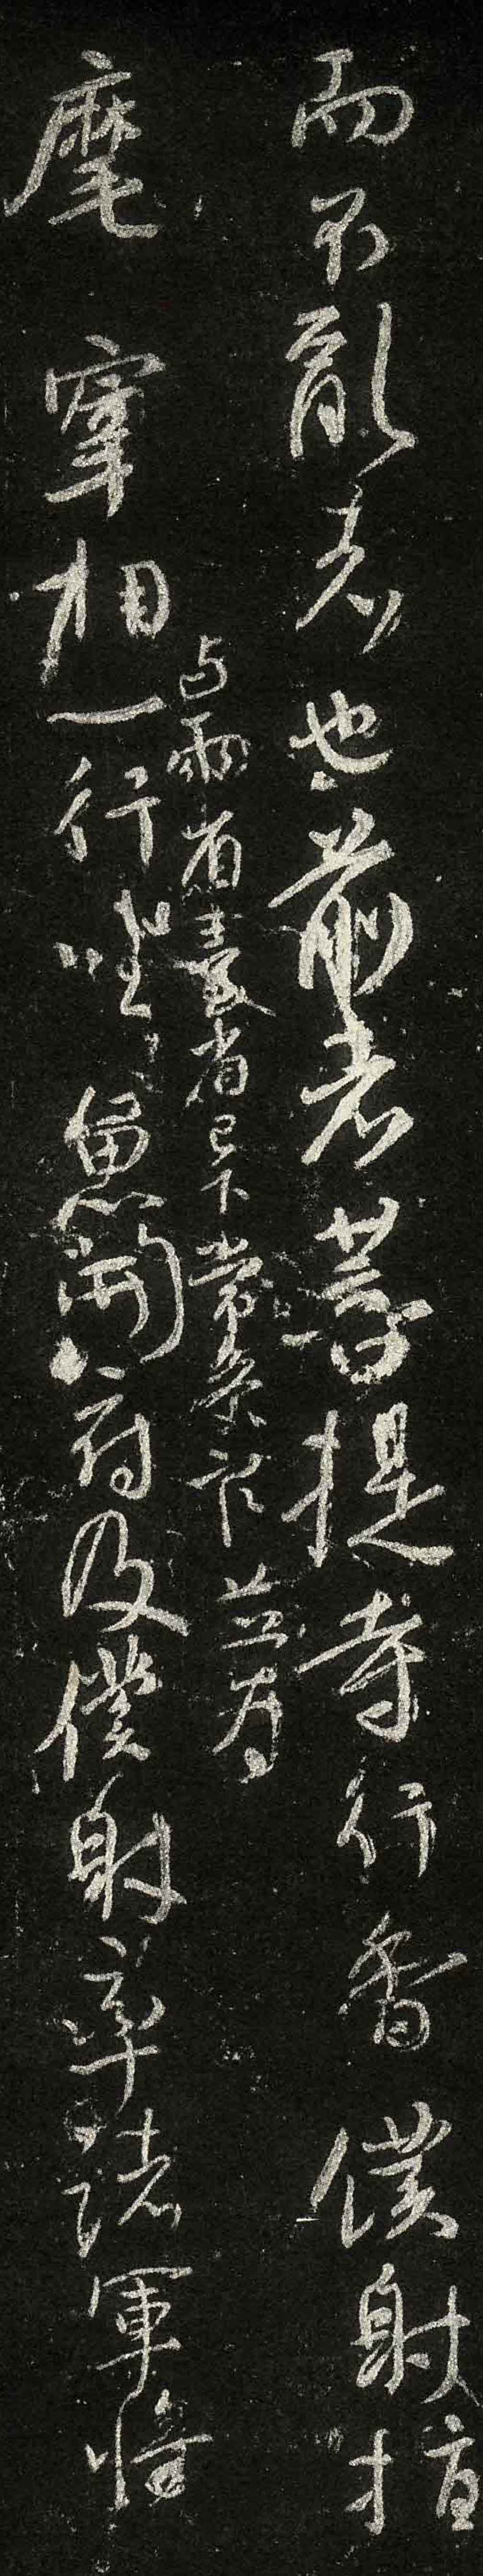 而不亂者也前者菩提寺行香僕射指
与兩省臺省已下常參官並為
麾宰相一行坐魚開府及僕射率諸軍將